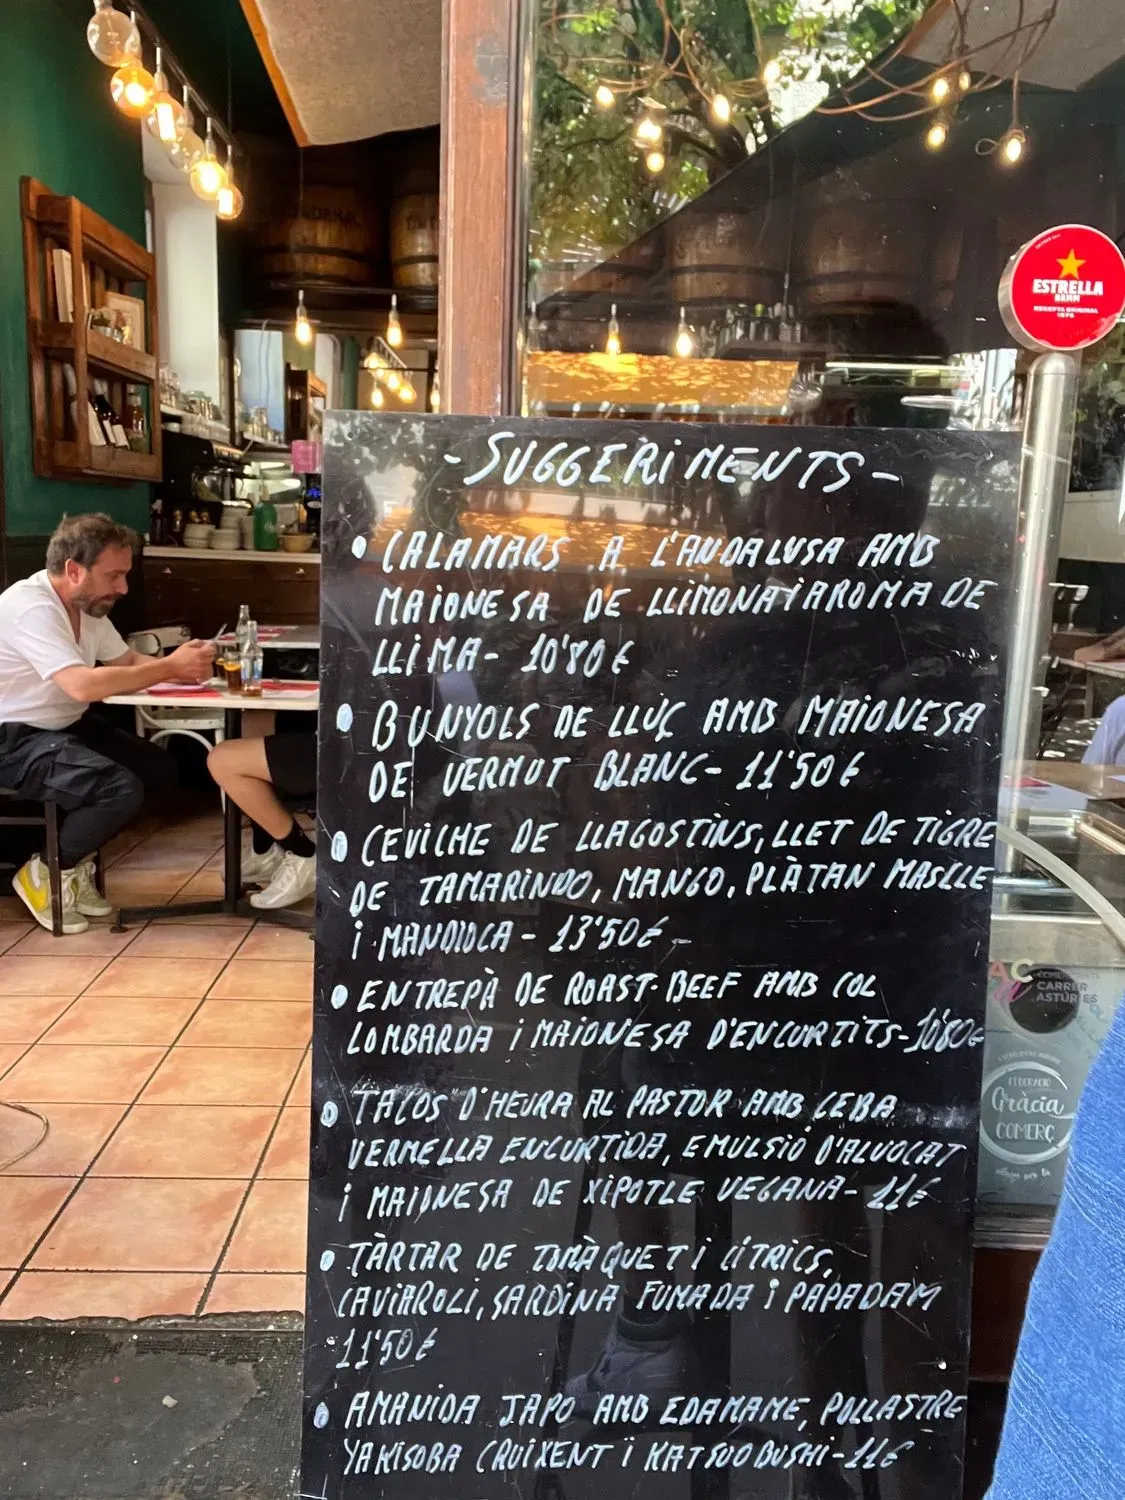 -SUGGERiMENTS-
• CALAMARS A L'ANDALUSA AMB
MAIONESA DE LLIMONA I AROMA DE
LLIMA- 10'80€
• BUNYOLS DE LLUÇ AMB MAIONESA
DE VERMUT BLANC- 11'50€
• CEVICHE DE LLAGOSTINS, LLET DE TIGRE
DE TAMARINDO, MANGO, PLÀTAN MASCLE
i MANDIOCA - 13'50€-
• ENTREPÀ DE ROAST-BEEF AMB COL
LOMBARDA i MAIONESA D'ENCURTITS-10'80€
• TACOS D'HEURA AL PASTOR AMB CEBA
VERMELLA ENCURTIDA, EMULSIÓ D'ALVOCAT
i MAIONESA DE XIPOTLE VEGANA- 11€
• TÀRTAR DE TOMÀQUET i CÍTRICS,
CAVIAROLI, SARDINA FUMADA i PAPADAM
11'50€
• AMANIDA JAPO AMB EDAMAME, POLLASTRE
YAKISOBA CRUIXENT i KATSUOBUSHI-11€
ESTRELLA
DAMM
RECEPTA ORIGINAL
1876
AC
CARRER
ASTÚRIES
FEDERACIÓ
Gràcia
COMERÇ